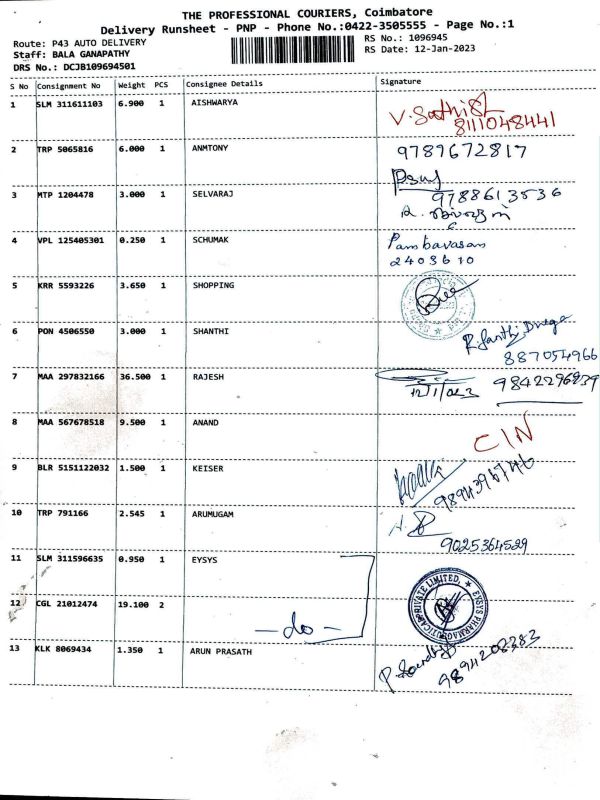 THE PROFESSIONAL COURIERS, Coimbatore
Delivery Runsheet - PNP - Phone No.:0422-3505555 - Page No.:1
Route: P43 AUTO DELIVERY
RS No.: 1096945
Staff: BALA GANAPATHY
RS Date: 12-Jan-2023
DRS No.: DCJB109694501
S No Consignment No Weight PCS Consignee Details Signature
1 SLM 311611103 6.900 1 AISHWARYA
8111048441
2 TRP 5065816 6.000 1 ANMTONY 9789672817
3 MTP 1204478 3.000 1 SELVARAJ 9788613536
4 VPL 125405301 0.250 1 SCHUMAK Pambavasan
2403610
5 KRR 5593226 3.650 1 SHOPPING
6 PON 4506550 3.000 1 SHANTHI
887054966
7 MAA 297832166 36.500 1 RAJESH 9842296239
8 MAA 567678518 9.500 1 ANAND CIN
9 BLR 5151122032 1.500 1 KEISER
10 TRP 791166 2.545 1 ARUMUGAM
9025364529
11 SLM 311596635 0.950 1 EYSYS
12 CGL 21012474 19.100 2
- do -
EYSYS PHARMACEUTICAL PRIVATE LIMITED
13 KLK 8069434 1.350 1 ARUN PRASATH
9894208383